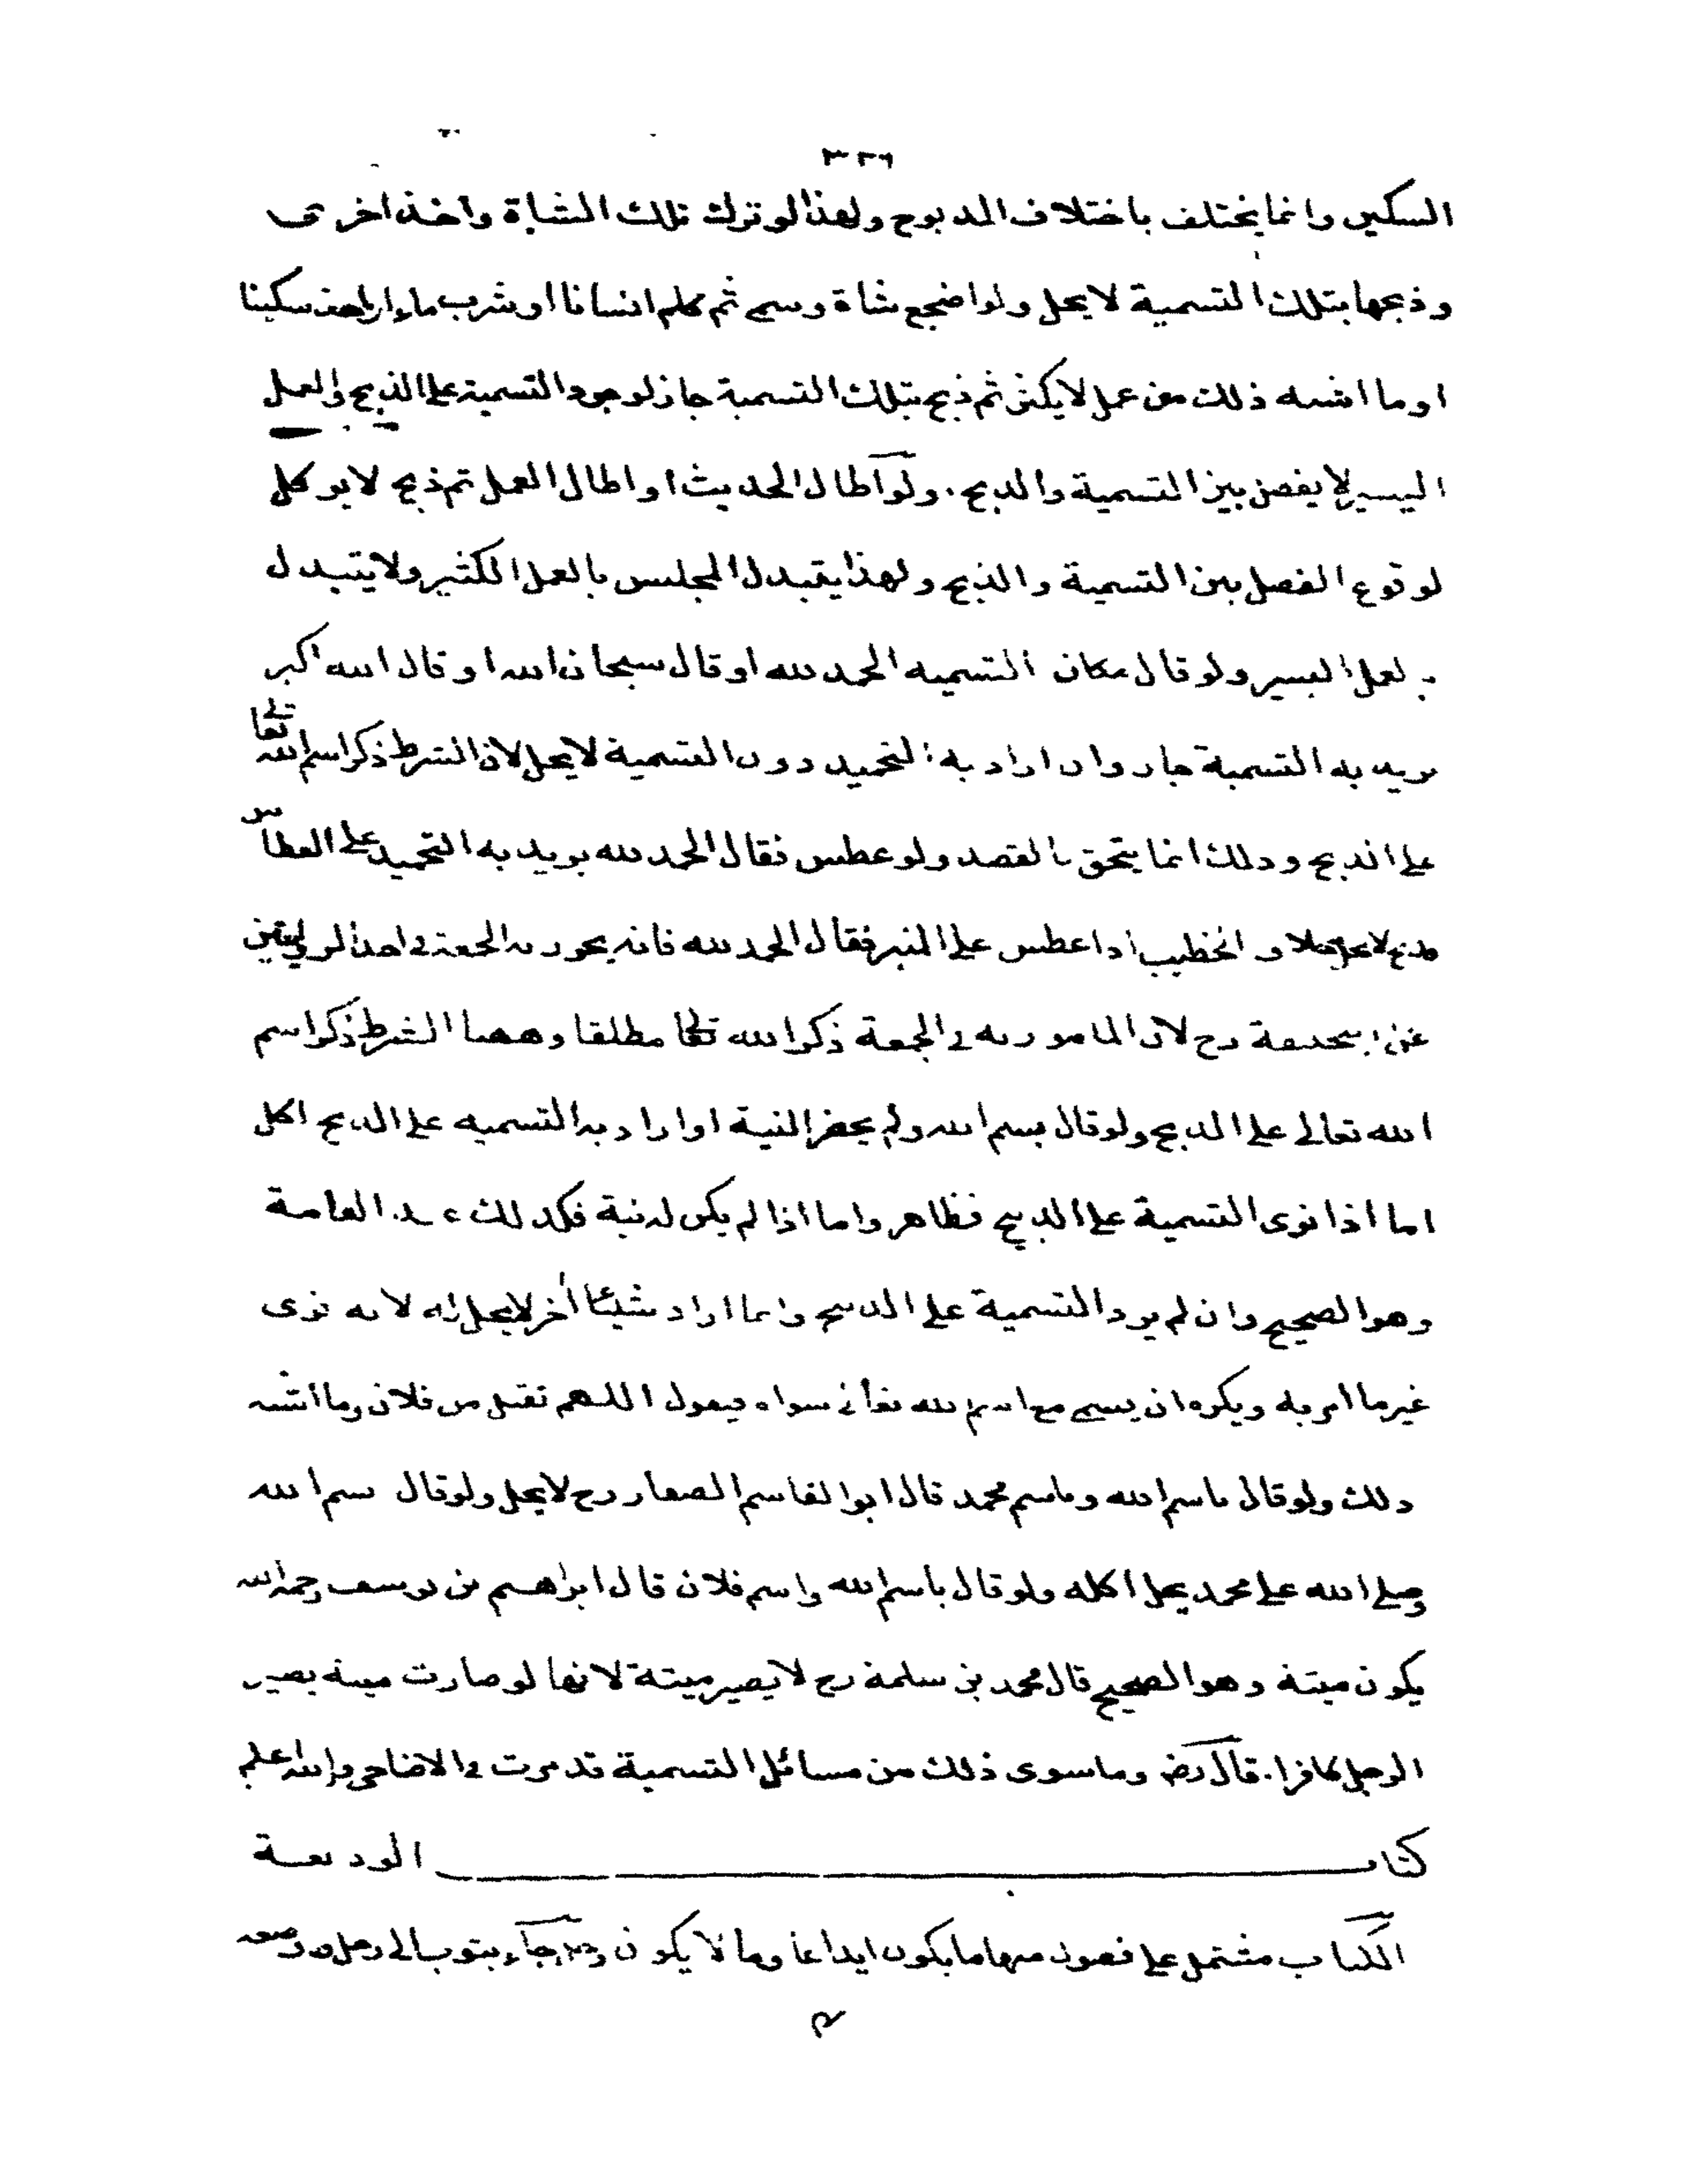 ٣٢٦
السكين وانما يختلف باختلاف المذبوح ولهذا لو ترك تلك الشاة واخذ اخرى
وذبحها بتلك التسمية لا يحل ولو اضجع شاة وسمى ثم كلم انسانا او شرب ماء سكينا
او ما اشبه ذلك من عمل لا يكثر ثم ذبح بتلك التسمية جاز لوجود التسمية على الذبح والعمل
اليسير لا يفصل بين التسمية والذبح . ولو اطال الحديث او اطال العمل ثم ذبح لا يوكل
لوقوع الفصل بين التسمية والذبح ولهذا يتبدل المجلس بالعمل الكثير ولا يتبدل
بالعمل اليسير ولو قال مكان التسميه الحمد لله او قال سبحان الله او قال الله اكبر
يريد به التسمية جاز وان اراد به التحميد دون التسمية لا يحل لان الشرط ذكر اسم الله تعالى
على الذبح وذلك انما يتحقق بالقصد ولو عطس فقال الحمد لله يريد به التحميد على العطاس
فذبح لا يحل والخطيب اذا عطس على المنبر فقال الحمد لله فانه يجوز به الجمعة في احد الروايتين
عن ابيحنيفة رح لان المامور به في الجمعة ذكر الله تعالى مطلقا وههنا الشرط ذكر اسم
الله تعالى على الذبح ولو قال بسم الله ولم يحضر النية او اراد به التسميه على الذبح اكل
اما اذا نوى التسمية على الذبح فظاهر واما اذا لم يكن له نية فكذلك عند العامة
وهو الصحيح وان لم يرد التسمية على الذبح وانما اراد شيئا آخر لا يحل لانه نوى
غير ما امر به ويكره ان يسمى مع اسم الله تعالى سواه فيقول اللهم تقبل من فلان وما اشبه
ذلك ولو قال باسم الله وباسم محمد قال ابو القاسم الصفار رح لا يحل ولو قال بسم الله
وصلى الله على محمد يحل اكله ولو قال باسم الله واسم فلان قال ابراهيم بن يوسف رحمه الله
يكون ميتة وهو الصحيح قال محمد بن سلمة رح لا يصير ميتة لانها لو صارت ميتة يصير
الرجل كافرا . قال رض وما سوى ذلك من مسائل التسمية قد مرت في الاضاحى والله اعلم
كتاب الوديعة
الكتاب مشتمل على فصول منها ما يكون ايداعا وما لا يكون جاء بثوب الى رجل